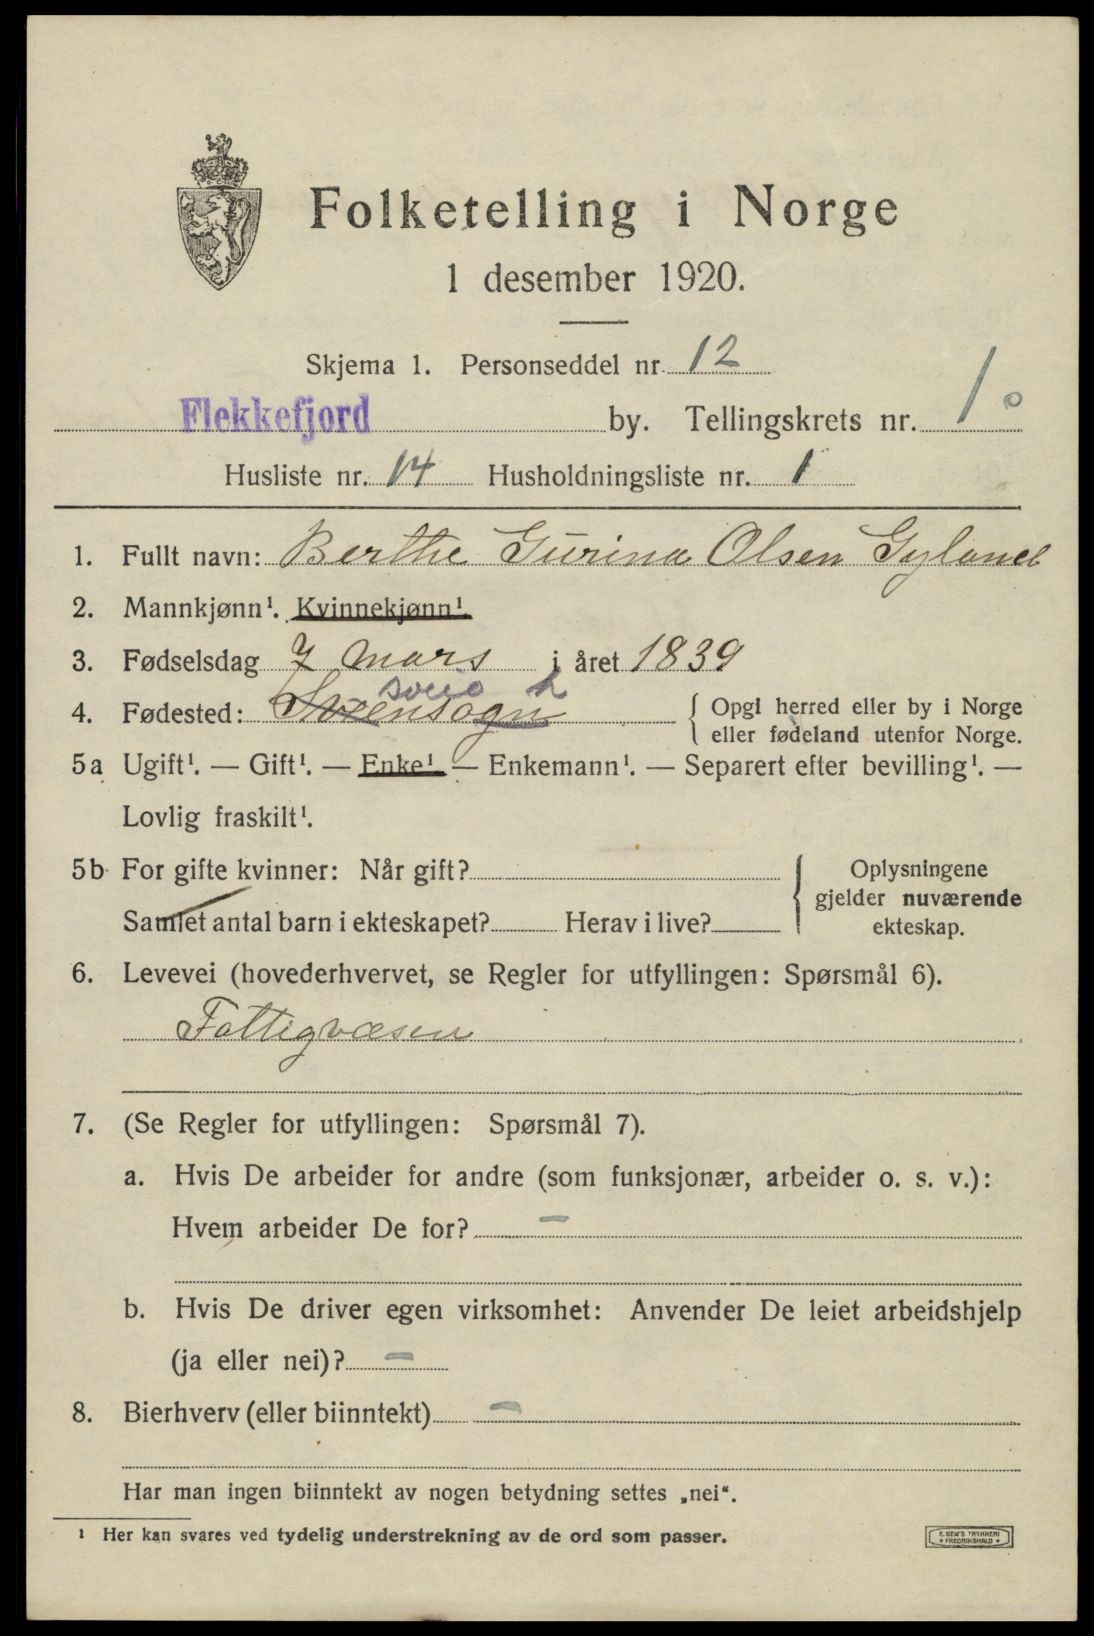 Folketelling i Norge
1 desember 1920.
Skjema 1. Personseddel nr. 12
Flekkefjord by. Tellingskrets nr. 1 o
Husliste nr. 14 Husholdningsliste nr. 1
1. Fullt navn: Berthe Gurina Olsen Gyland
2. Mannkjønn¹. Kvinnekjønn¹.
3. Fødselsdag 7 mars i året 1839
sveio h
4. Fødested: sogn { Opgi herred eller by i Norge
eller fødeland utenfor Norge.
5a Ugift¹. — Gift¹. — Enke¹. — Enkemann¹. — Separert efter bevilling¹. —
Lovlig fraskilt¹.
5b For gifte kvinner: Når gift? { Oplysningene
gjelder nuværende
Samlet antal barn i ekteskapet? Herav i live? ekteskap.
6. Levevei (hovederhvervet, se Regler for utfyllingen: Spørsmål 6).
Fattigvæsen
7. (Se Regler for utfyllingen: Spørsmål 7).
a. Hvis De arbeider for andre (som funksjonær, arbeider o. s. v.):
Hvem arbeider De for? —
b. Hvis De driver egen virksomhet: Anvender De leiet arbeidshjelp
(ja eller nei)? —
8. Bierhverv (eller biinntekt) —
Har man ingen biinntekt av nogen betydning settes „nei“.
¹ Her kan svares ved tydelig understrekning av de ord som passer.
E. SEM'S TRYKKERI
• FREDRIKSHALD •